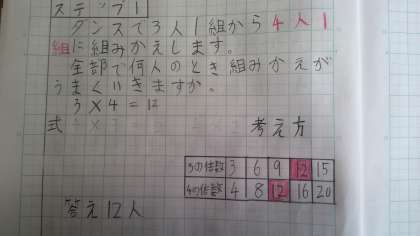 ステップ1
ダンスで3人1組から4人1
組に組みかえします。
全部で何人のとき組みかえが
うまくいきますか。
3×4=12
式
考え方
3の倍数 3 6 9 12 15
4の倍数 4 8 12 16 20
答え12人